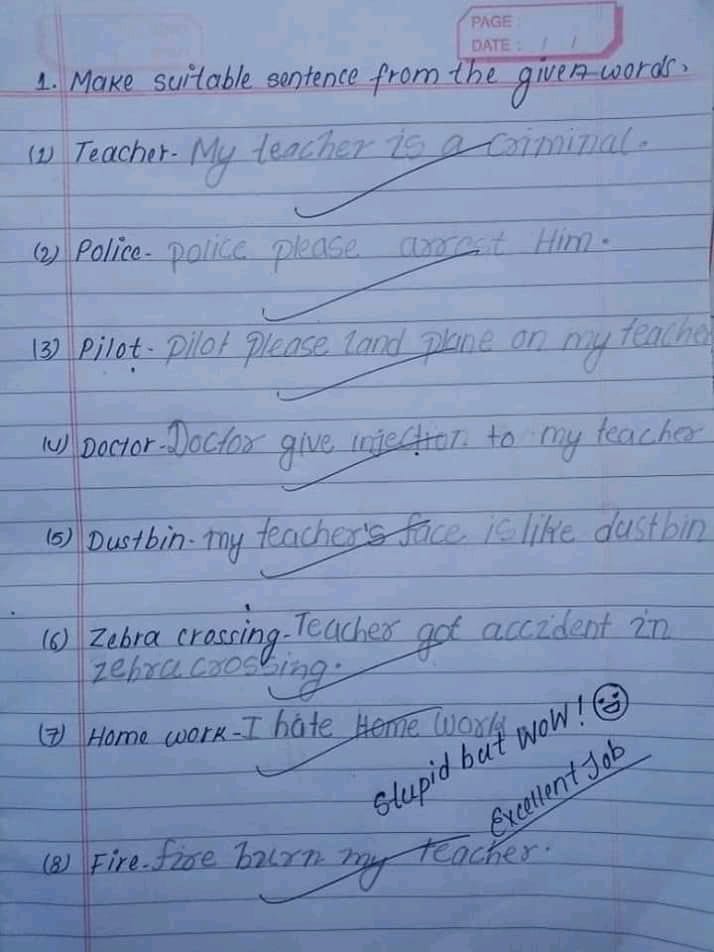 PAGE :
DATE : / /
1. Make suitable sentence from the given words.
(1) Teacher- My teacher is a criminal.
(2) Police- police please arrest Him.
(3) Pilot- pilot please land plane on my teacher
(4) Doctor- Doctor give injection to my teacher
(5) Dustbin- my teacher's face is like dustbin
(6) Zebra crossing- Teacher got accident in
zebra crossing.
(7) Home work- I hate Home work
Stupid but wow!
Excellent Job
(8) Fire- fire burn my teacher.